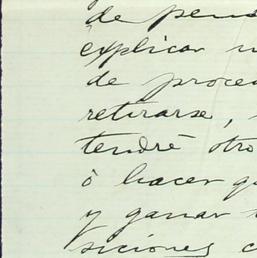 de pens
explicar
de proced
retirarse,
tendré otro
ó hacer q
y ganar
siciones c